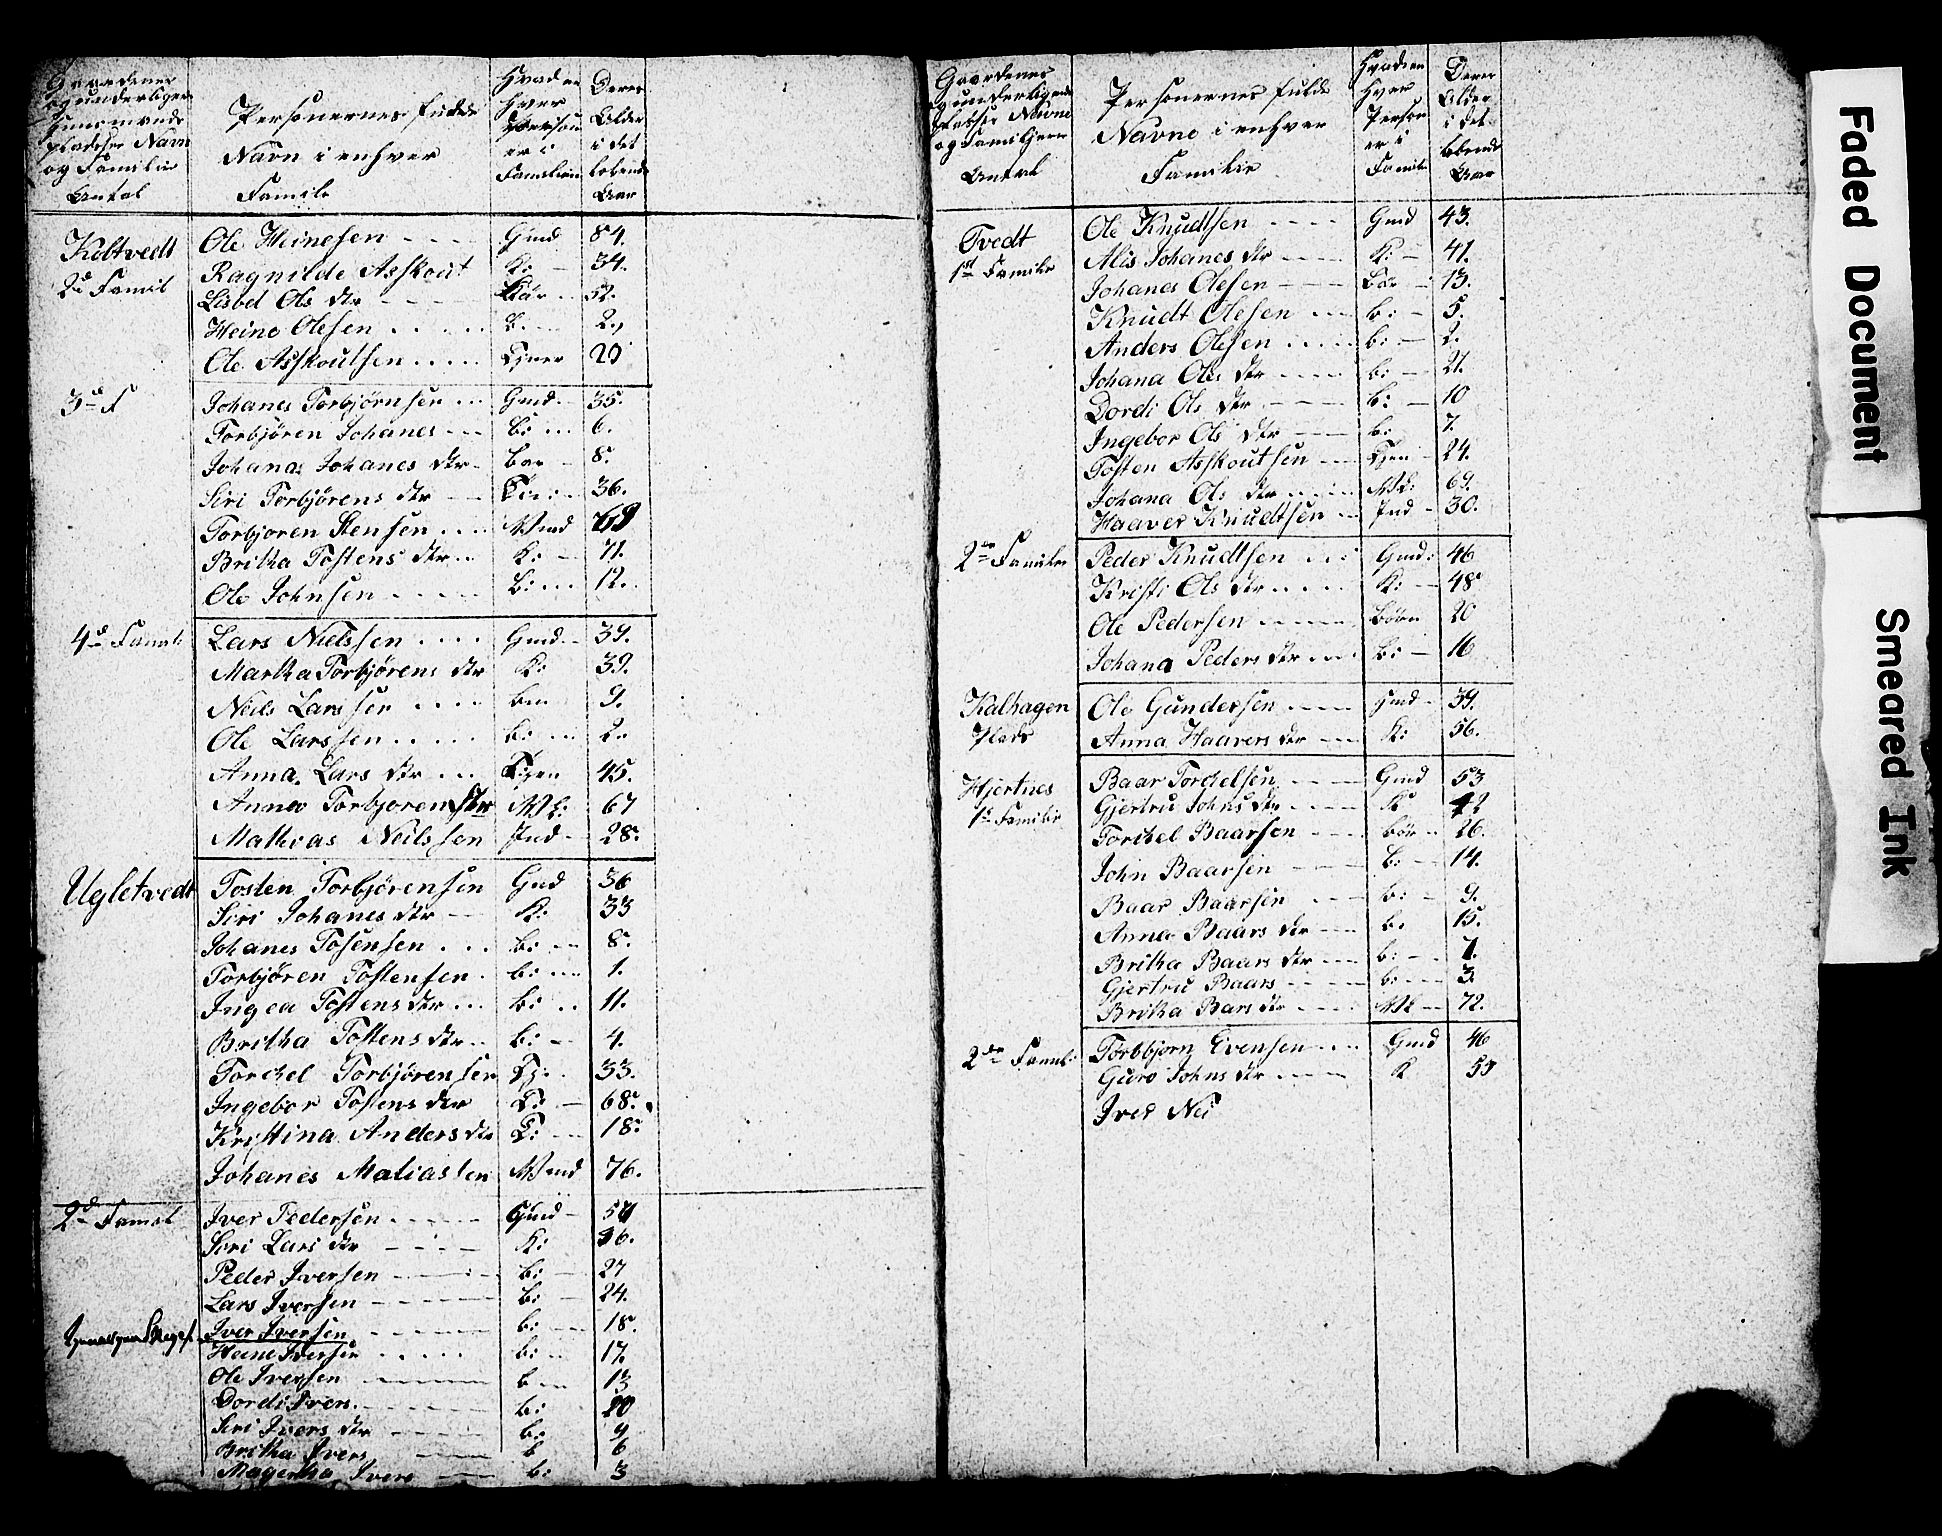 Gaardenes
og underligen
Huusmands
pladser Navn
og Familie
Antal
Personernes fulde
Navn i enhver
Famile
Hvad er
Hver
Person
er i
Familien
Deres
Alder
i det
lobende
Aar
Koltvedt Ole Heinesen Gmd 84.
2d Famil Ragnilde Asskout K: 34.
Lisbet Ols dtr Kiär 52.
Heine Olesen B. 2.
Ole Asskoutsen Tjener 20
3d F Johanes Torbjörnsen Gmd. 35.
Torbjören Johanes B: 6.
Johanas Johanes dtr Bar 8.
Siri Torbjörens dtr 36.
Torbjoren Stensen Mand 69
Britha Tostens dtr K: 71.
Ole Johnsen B: 12.
4d Famil: Lars Nielssen Gmd 39.
Martha Torbjörens dtr K: 39.
Niels Larssen Barn 9.
Ole Larssen B: 2.
Anna Lars dtr Tjen 45.
Anna Torbjorens dtr 67
Mathias Neilssen Ind 28.
Ugletvedt Tosten Torbjörensen Gmd 36
Siri Johanes dtr K: 33
Johanes Tosensen B: 8.
Torbjören Tostensen B: 1.
Ingea Tostens dtr B: 11.
Britha Tostens dtr B: 4.
Torchel Torbjörensen Tj: 33.
Ingebor Tostens dtr T: 68.
Kristina Anders dtr T: 18.
Johanes Matiassen Mand 76.
2d Famil Iver Pedersen Gmd 57
Siri Lars dtr K: 36.
Peder Iversen B: 27
Lars Iversen B: 24.
Iver Iversen B: 18.
Heine Iversen B: 17.
Ole Iversen B 13
Dordi Ivers. B: 20
Siri Ivers dtr B: 9
Britha Ivers B 6
Magertha Ivers B: 3
Gaardenes
og underligende
pladser Navne
og Familjers
Antal
Personernes fulde
Navne i enhver
Familie
Hvad en
Hver
Person
er i
Familie
Deres
Alder
i det
lobende
Aar
Tvedt Ole Knudtsen Gmd 43.
1st Familie Alis Johanes dtr K: 41.
Johanes Olesen Bör 13.
Knudt Olesen B: 5.
Anders Olesen B: 2.
Johana Oles dtr B: 21.
Dordi Ols dtr B: 10
Ingebor Ols dtr B: 7.
Tosten Asskoutsen Tjen 24.
Johana Ols dtr 69.
Haaver Knudtsen Ind 30.
2de Familie Peder Knudtsen Gmd: 46
Kristi Ols dtr K: 48
Ole Pedersen Börn 20
Johana Peders dtr B: 16
Kalhagen Ole Gundersen Gmd 39.
Plads Anna Haavers dtr K: 56.
Hjertnes Baar Torchelsen Gmd 53
1ste Familie Gjertru Johns dtr K 42
Torchel Baarsen Bör 26.
John Baarsen B: 14.
Baar Baarsen B: 9.
Anna Baars dtr B. 15.
Britha Baars dtr B: 7.
Gjertru Baars B: 3.
Britha Bars dtr 72.
2de Famil: Torbbjorn Evensen Gmd 46
Guro Johns dtr K 53
Iver Nei
Faded Document
Smeared Ink